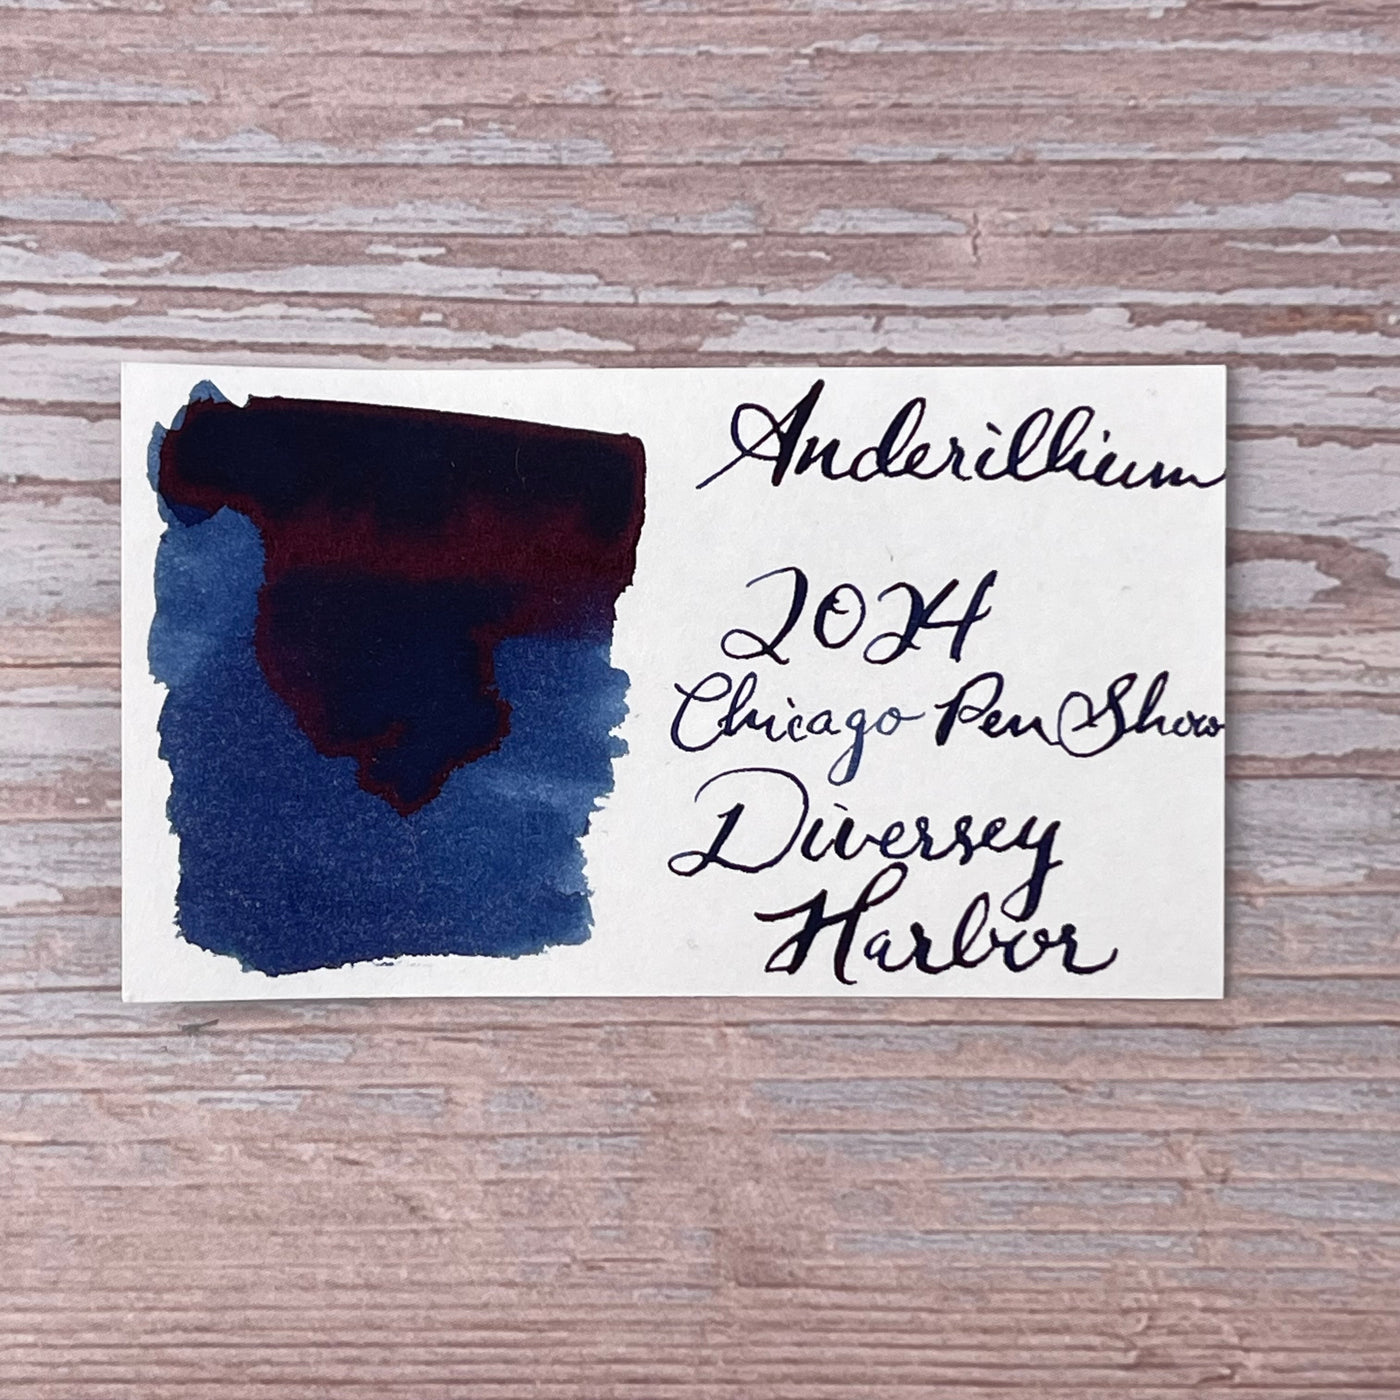 Anderillium
2024
Chicago Pen Show
Diversey
Harbor